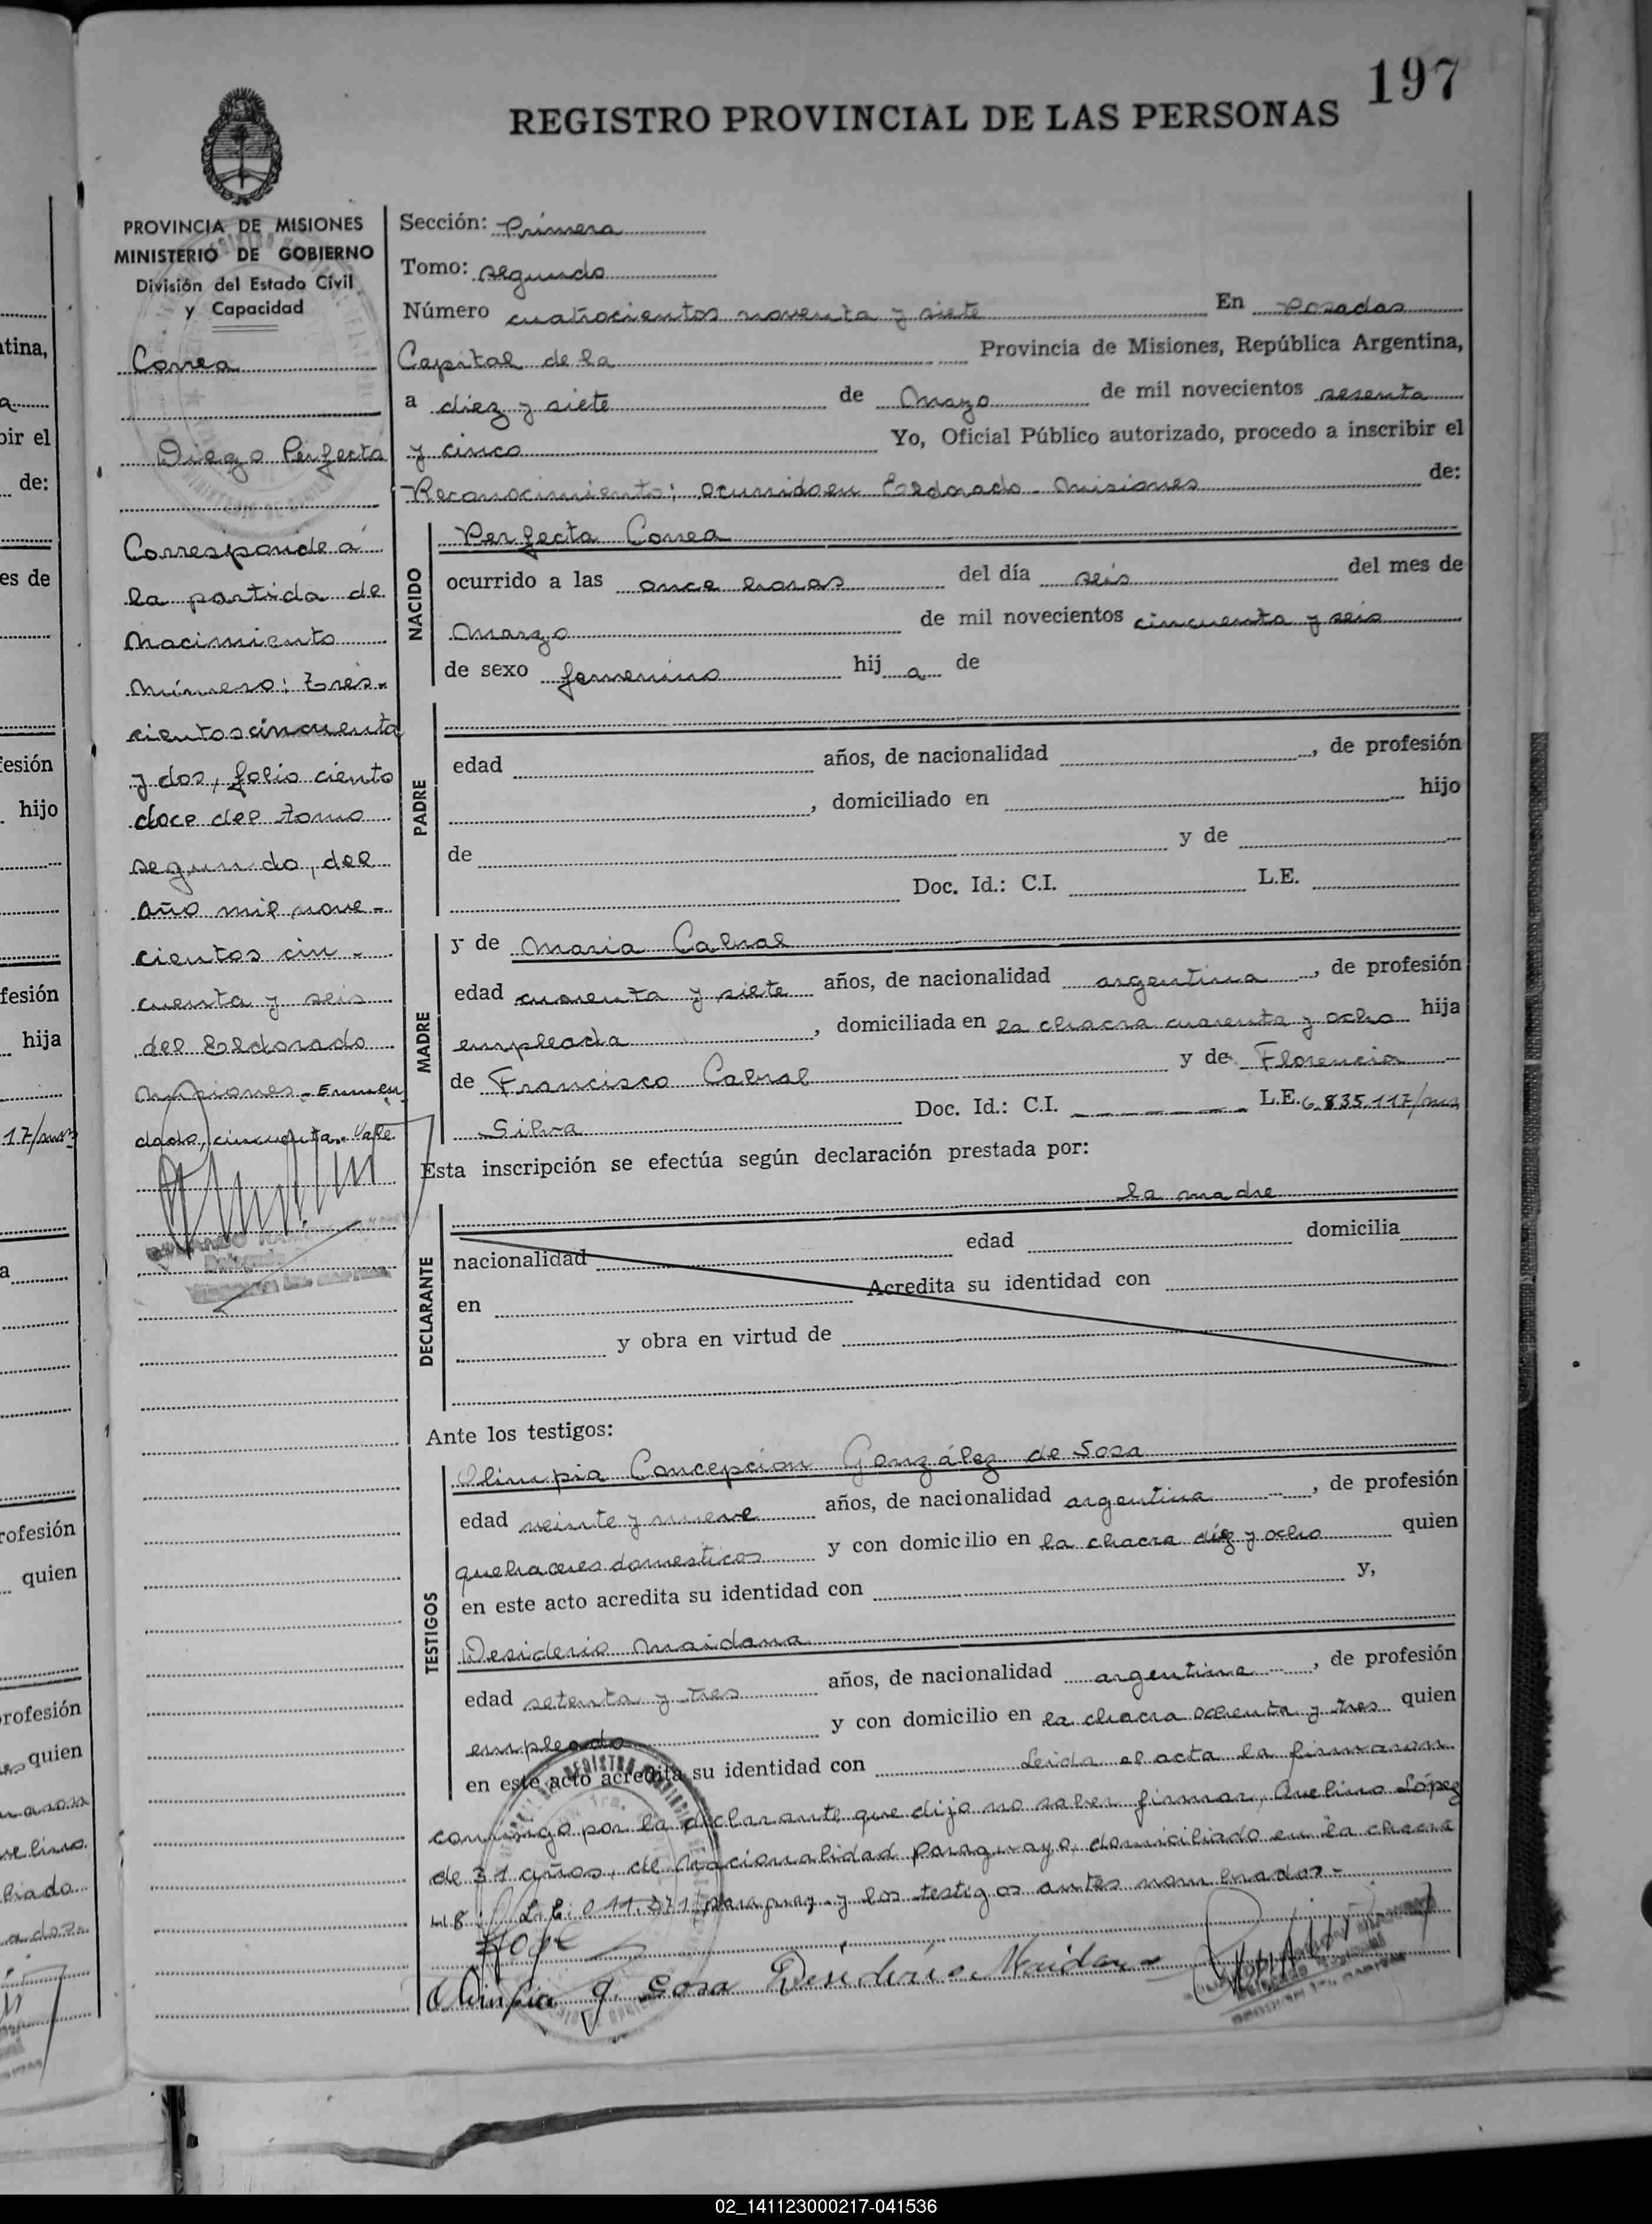 197
REGISTRO PROVINCIAL DE LAS PERSONAS
PROVINCIA DE MISIONES
MINISTERIO DE GOBIERNO
División del Estado Civil
y Capacidad
Correa
Diego Perfecta
Corresponde a
la partida de
Nacimiento
número: Tres-
cientos cincuenta
y dos, folio ciento
doce del tomo
segundo, del
año mil nove-
cientos cin-
cuenta y seis
del Eldorado
Misiones.- Enmen
dado, cincuenta. Vale
Sección: Primera
Tomo: segundo
Número cuatrocientos noventa y siete En Posadas
Capital de la Provincia de Misiones, República Argentina,
a diez y siete de Mayo de mil novecientos sesenta
y cinco Yo, Oficial Público autorizado, procedo a inscribir el
Reconocimiento; ocurrido en Eldorado - Misiones de:
NACIDO
Perfecta Correa
ocurrido a las once horas del día seis del mes de
Marzo de mil novecientos cincuenta y seis
de sexo femenino hij a de
PADRE
edad años, de nacionalidad , de profesión
, domiciliado en hijo
de y de
Doc. Id.: C.I. L.E.
MADRE
y de Maria Cabral
edad cuarenta y siete años, de nacionalidad argentina , de profesión
empleada , domiciliada en la chacra cuarenta y ocho hija
de Francisco Cabral y de Florencia
Silva Doc. Id.: C.I. L.E. 6.835.117/mnes
Esta inscripción se efectúa según declaración prestada por:
la madre
DECLARANTE
nacionalidad edad domicilia
en Acredita su identidad con
y obra en virtud de
Ante los testigos:
TESTIGOS
Olimpia Concepcion González de Sosa
edad veinte y nueve años, de nacionalidad argentina , de profesión
quehaceres domesticos y con domicilio en la chacra diez y ocho quien
en este acto acredita su identidad con y,
Desiderio Maidana
edad setenta y tres años, de nacionalidad argentina , de profesión
empleado y con domicilio en la chacra ochenta y tres quien
en este acto acredita su identidad con Leida el acta la firmaron
conmigo por la declarante que dijo no saber firmar, Avelino López
de 31 años, de Nacionalidad paraguaya, domiciliado en la chacra
48 paraguay y los testigos antes nombrados.-
Olimpia g. Sosa Desiderio Maidana
02_141123000217-041536